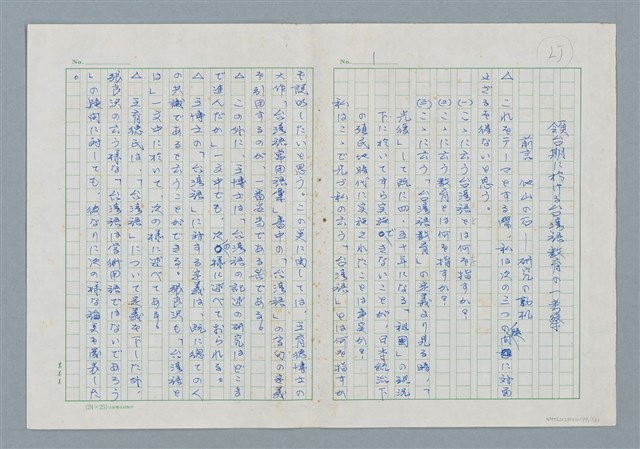 No. 1
LJ
領台期に於ける台湾語教育の一考察
前言 他山の石——研究の動機
△ これをテーマとする際、私は次の三つの問題に対面
せざるを得ないと思う。
(一) ここに云う台湾語とは何を指すか?
(二) ここに云う教育とは何を指すか?
(三) ここに云う、「台湾語教育」の定義より見る時、「
光復」して既に四、五十年になる「祖国」の現況
下に於いてすら実施できないことが、日本統治下
の殖民地時代に実施されたことは事実か?
私はここで先づ私の云う「台湾語」とは何を指すか
No.
を説明したいと思う。この点に関しては、王育徳博士の
大作、「台湾語常用語彙」書中の「台湾語」の言葉の定義
を引用するのが、一番妥当である筈である。
△ この外に、王博士は、「台湾語の記述的研究はどこま
で進んだか」一文中でも、次の様に述べておられる。
△ 王博士の、「台湾語」に対する定義は、既に総ての人
の共識であると云うことができる。鄭良沢も、「台湾語と
は」一文中に於いて、次の様に述べてある。
△ 王育徳氏は、「台湾語」について定義を下した外、
鄭良沢の云う様な、「台湾語は学術用語ではないであろう
」の疑問に対しても、彼なりに次の様な論文を発表した
。
(25×25)